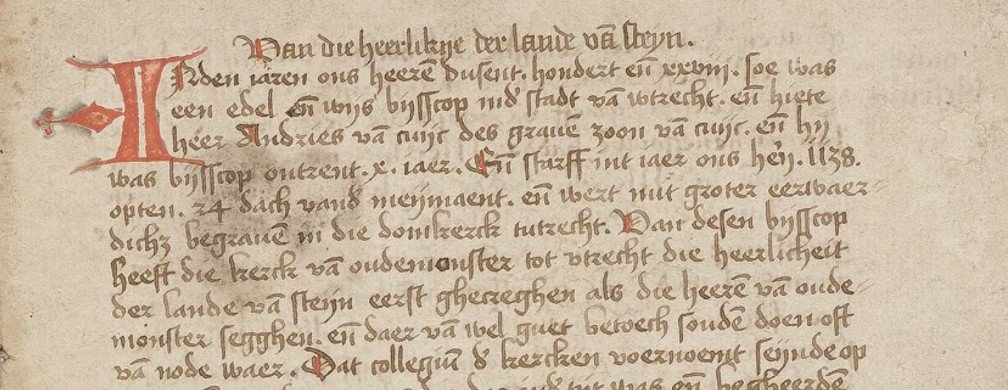 Van die heerlikye der lande vā steyn.
INden iaren ons heerē dusent. hondert eñ xxviij. soe was
een edel eñ wijs bijsscop ind' stadt vā wtrecht. eñ hiete
heer Andries vā cuijc des grauē zoon vā cuijc. eñ hij
was bijsscop ontrent .x. iaer. Eñ starff int iaer ons herē. 1138.
opten. 24 dach vand' meijmaent. eñ wert mit groter eerwaer-
dich3 begrauē in die domkerck tutrecht. Van desen bijsscop
heeft die kerck vā oudemonster tot vtrecht die heerlicheit
der lande vā steyn eerst ghecreghen als die heerē vā oude-
monster segghen. eñ daer vā wel guet betoech soudē doen oft
vā node waer. Dat collegiū d' kercken voernoemt seynde op
was eñ begheerdē